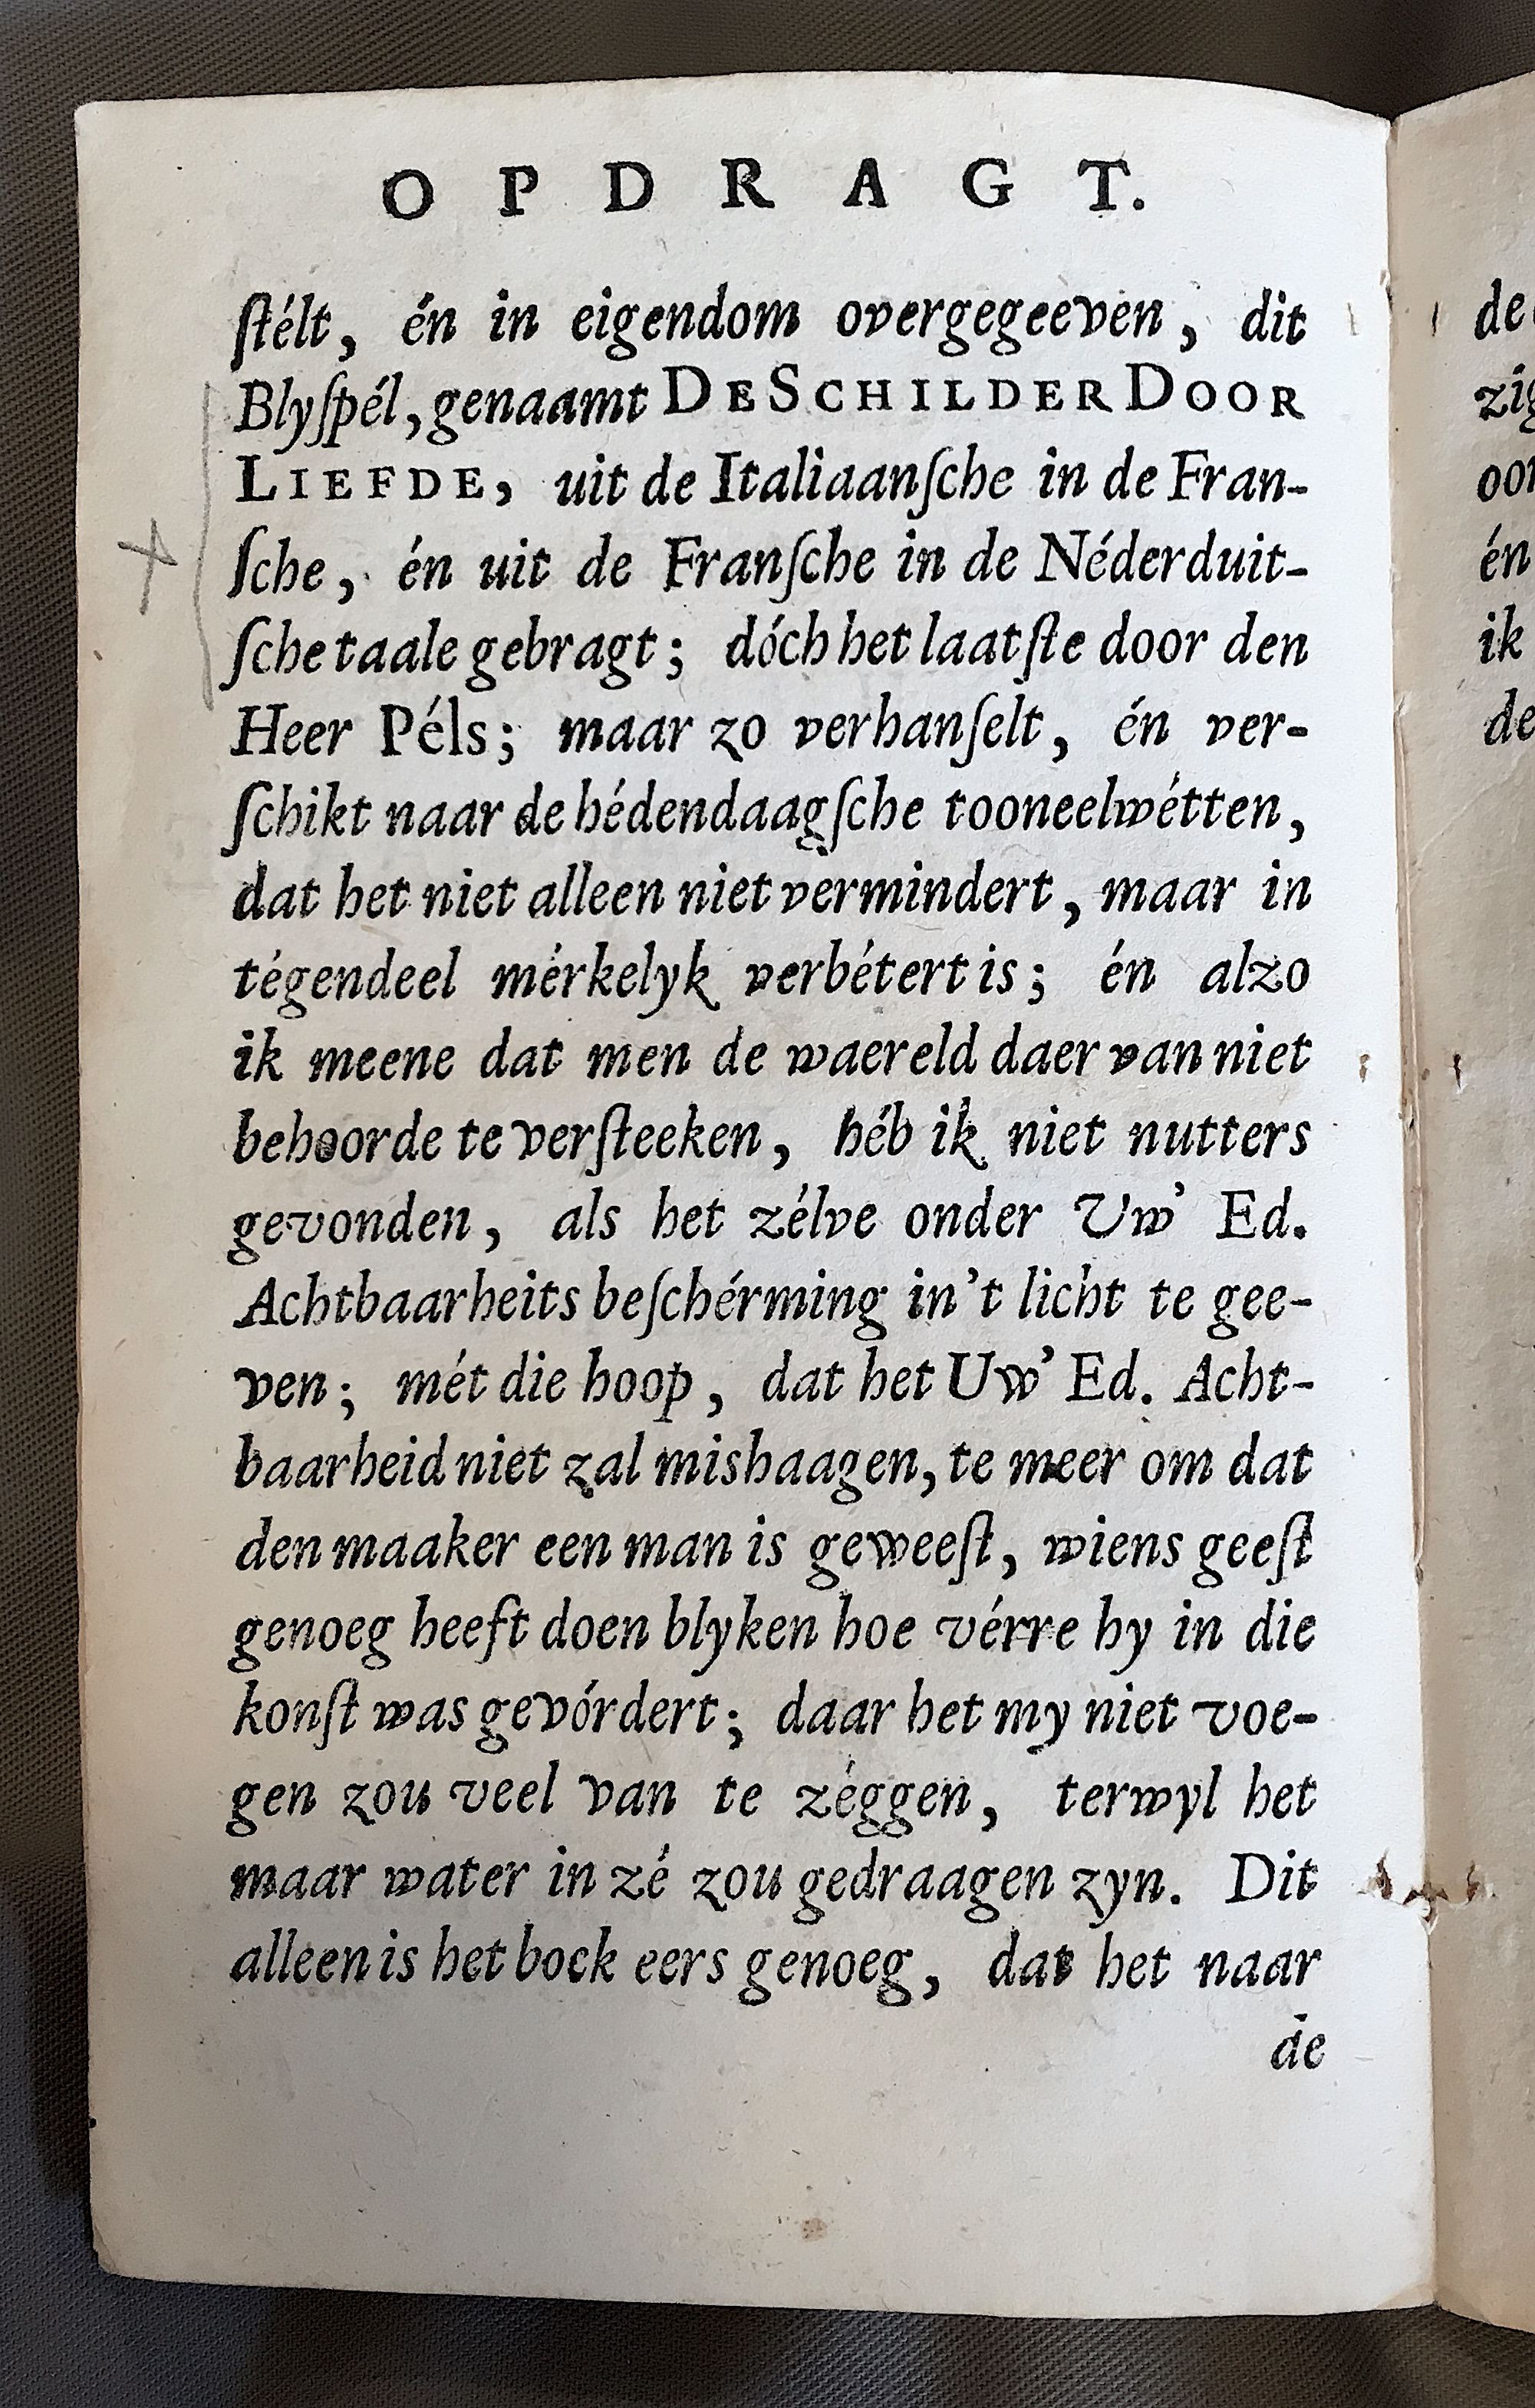 OPDRAGT.
ſtélt, én in eigendom overgegeeven, dit
Blyſpél, genaamt DE SCHILDER DOOR
LIEFDE, uit de Italiaanſche in de Fran-
ſche, én uit de Franſche in de Néderduit-
ſche taale gebragt; dóch het laatſte door den
Heer Péls; maar zo verhanſelt, én ver-
ſchikt naar de hédendaagſche tooneelwétten,
dat het niet alleen niet vermindert, maar in
tégendeel mérkelyk verbétert is; én alzo
ik meene dat men de waereld daer van niet
behoorde te verſteeken, héb ik niet nutters
gevonden, als het zélve onder Uw' Ed.
Achtbaarheits beſchérming in't licht te gee-
ven; mét die hoop, dat het Uw' Ed. Acht-
baarheid niet zal mishaagen, te meer om dat
den maaker een man is geweeſt, wiens geeſt
genoeg heeft doen blyken hoe vérre hy in die
konſt was gevórdert; daar het my niet voe-
gen zou veel van te zéggen, terwyl het
maar water in zé zou gedraagen zyn. Dit
alleen is het boek eers genoeg, dat het naar
de
de
zig
én
ik
de